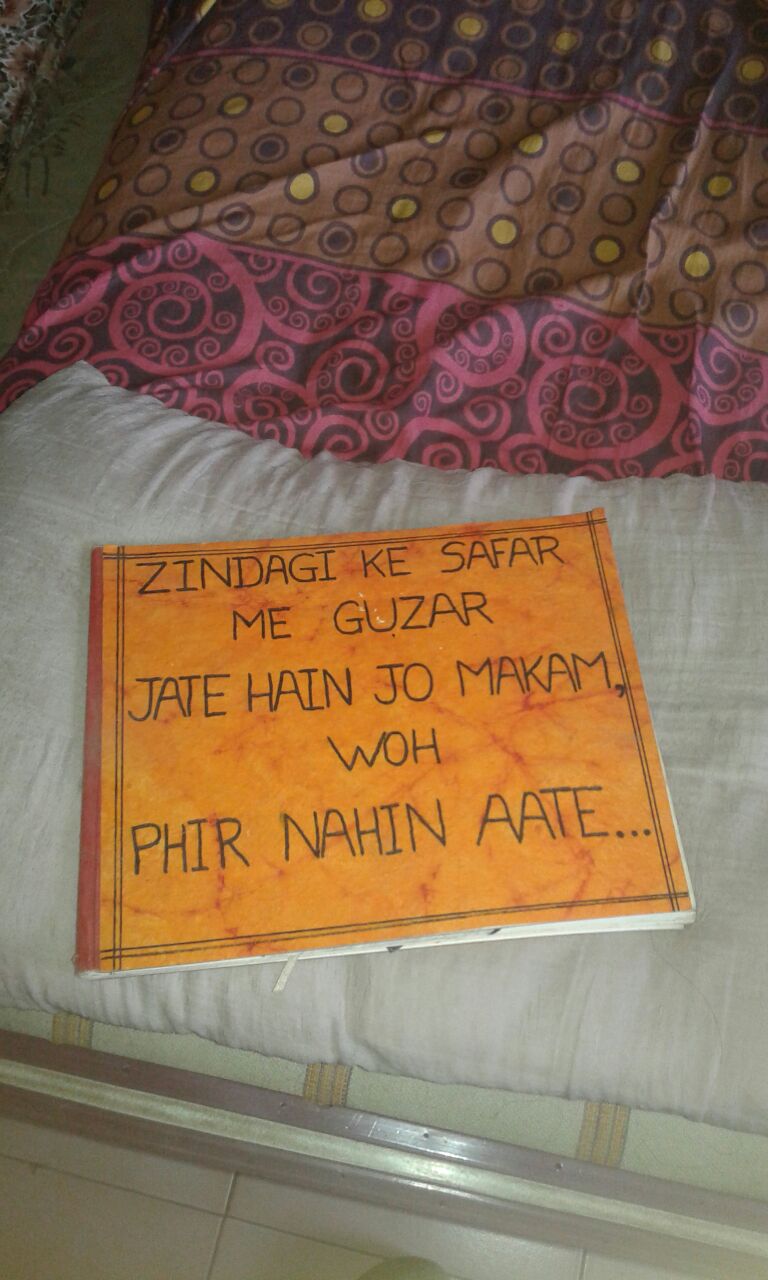 ZINDAGI KE SAFAR
ME GUZAR
JATE HAIN JO MAKAM,
WOH
PHIR NAHIN AATE...